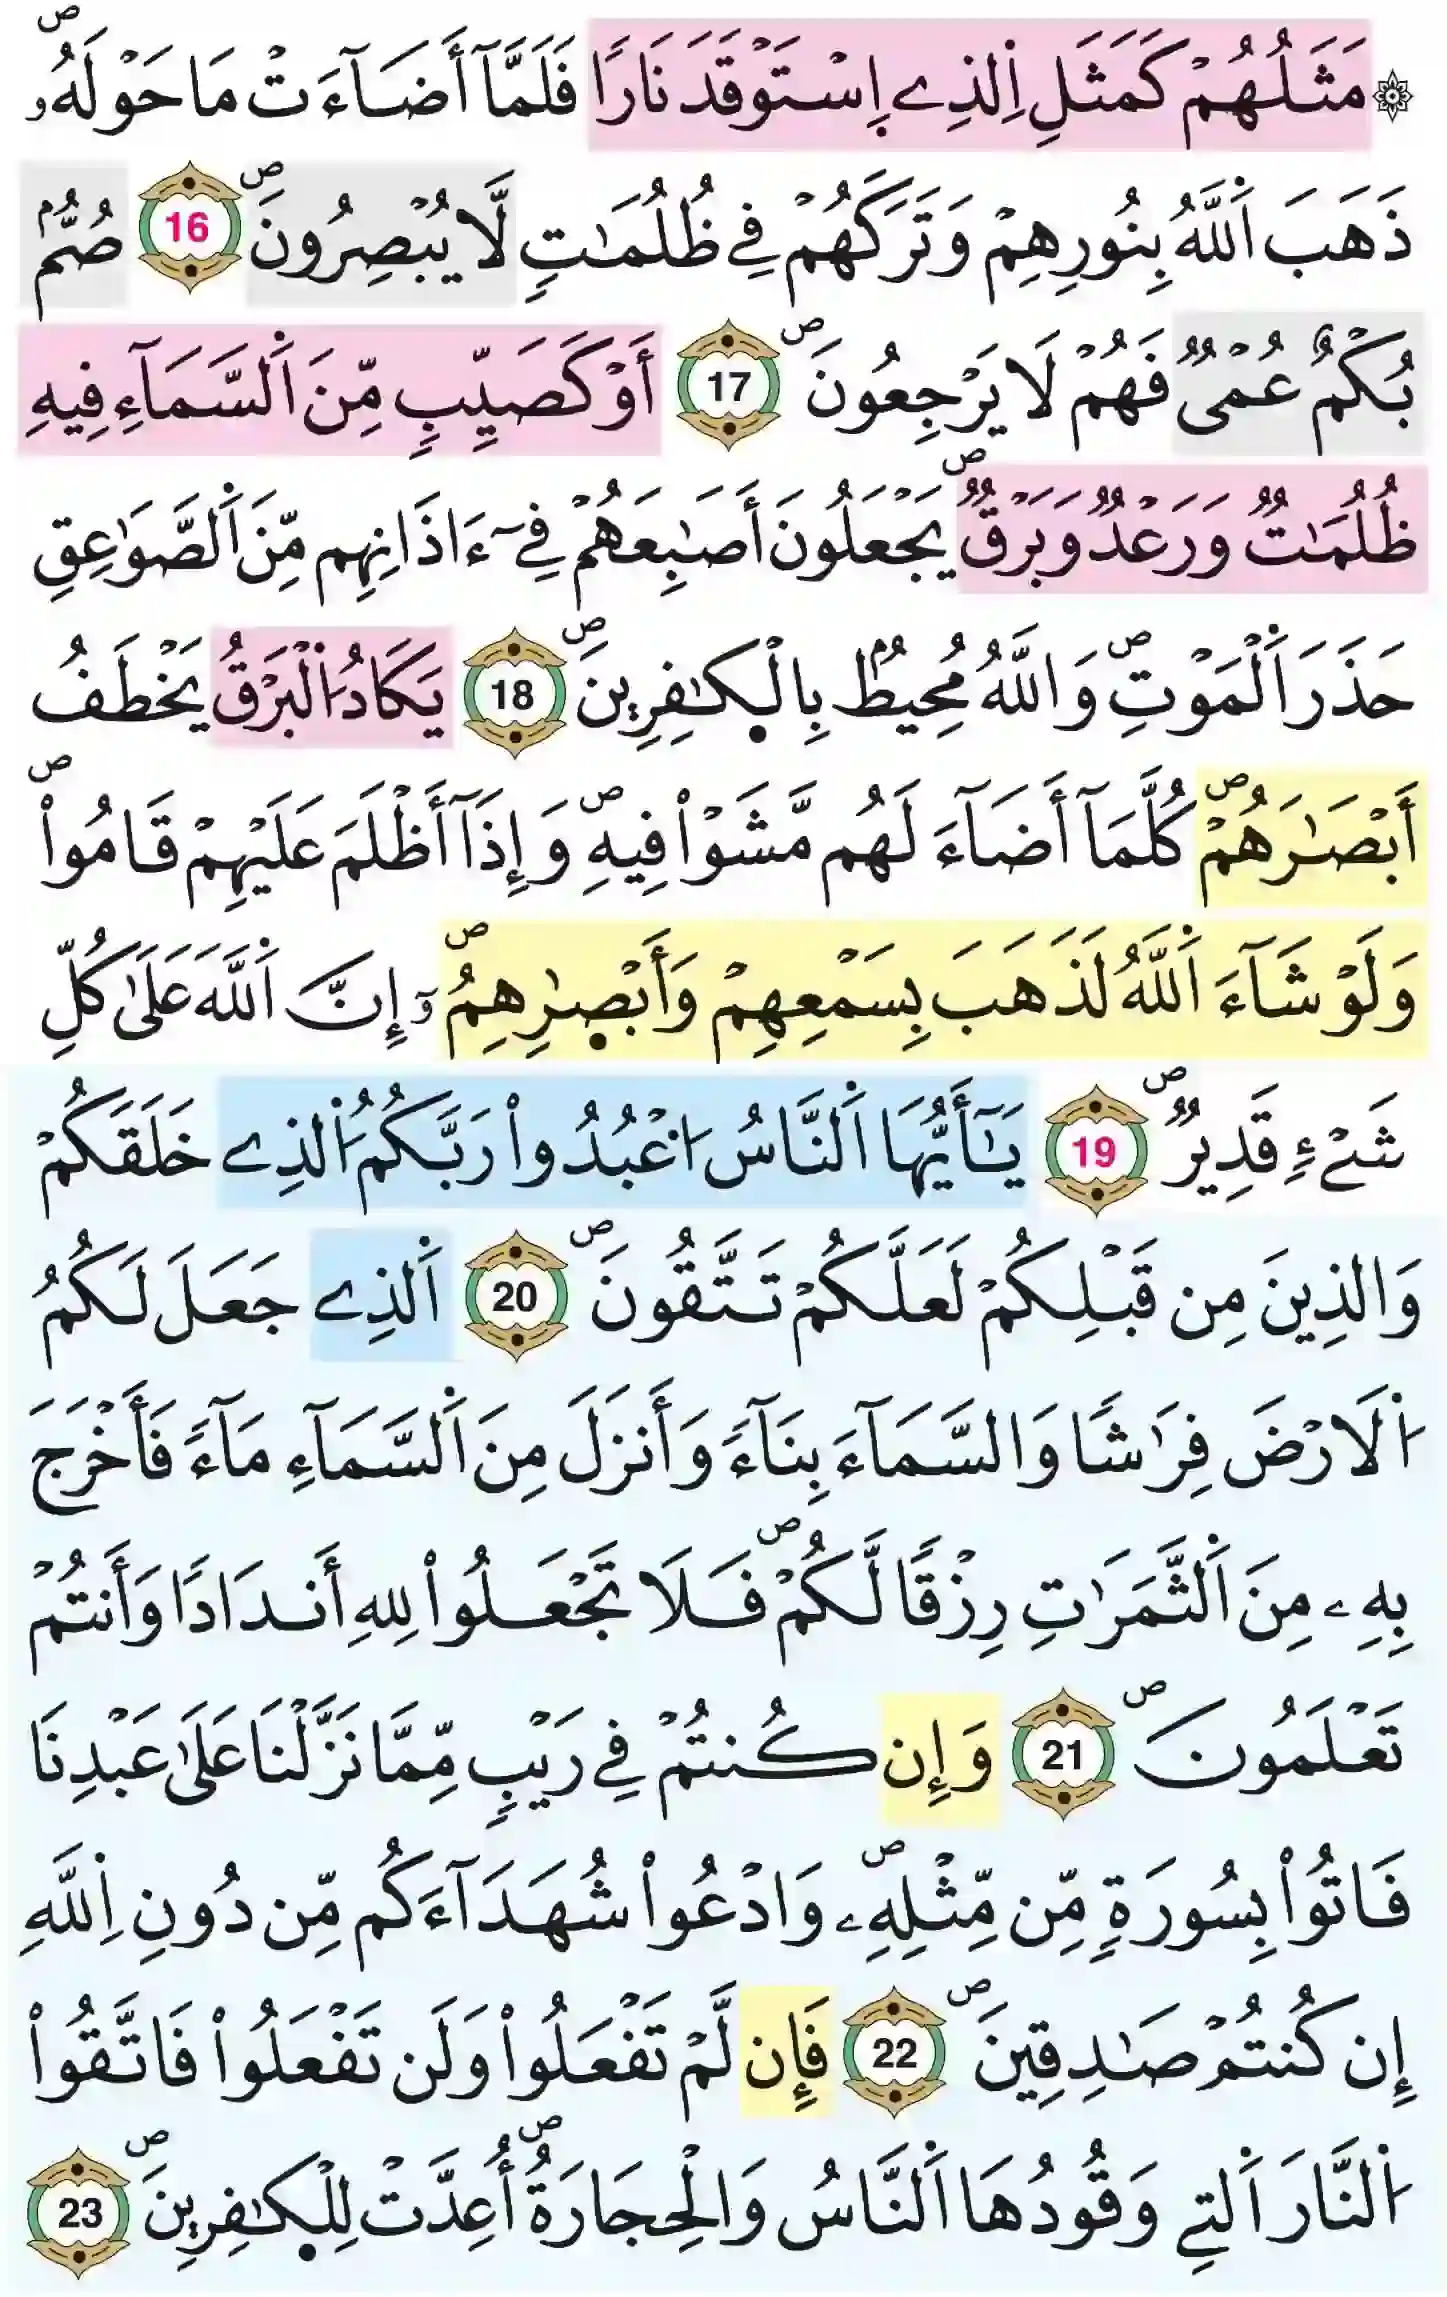 ۞ مَثَلُهُمْ كَمَثَلِ اِ۬لذِے اِ۪سْتَوْقَدَ نَارًا فَلَمَّآ أَضَآءَتْ مَا حَوْلَهُۥ ص
ذَهَبَ اَ۬للَّهُ بِنُورِهِمْ وَتَرَكَهُمْ فِے ظُلُمَٰتٍ لَّا يُبْصِرُونَ ص 16 صُمُّۢ
بُكْمٌ عُمْيٞ فَهُمْ لَا يَرْجِعُونَ ص 17 أَوْ كَصَيِّبٖ مِّنَ اَ۬لسَّمَآءِ فِيهِ
ظُلُمَٰتٞ وَرَعْدٞ وَبَرْقٞ ص يَجْعَلُونَ أَصَٰبِعَهُمْ فِےٓ ءَاذَانِهِم مِّنَ اَ۬لصَّوَٰعِقِ
حَذَرَ اَ۬لْمَوْتِ ص وَاللَّهُ مُحِيطُۢ بِالْكٰ۪فِرِينَ ص 18 يَكَادُ اُ۬لْبَرْقُ يَخْطَفُ
أَبْصَٰرَهُمْ ص كُلَّمَآ أَضَآءَ لَهُم مَّشَوْاْ فِيهِ ص وَإِذَآ أَظْلَمَ عَلَيْهِمْ قَامُواْ ص
وَلَوْ شَآءَ اَ۬للَّهُ لَذَهَبَ بِسَمْعِهِمْ وَأَبْصٰ۪رِهِمُۥٓ ص إِنَّ اَ۬للَّهَ عَلَىٰ كُلِّ
شَےْءٖ قَدِيرٞ ص 19 يَٰٓأَيُّهَا اَ۬لنَّاسُ اُ۟عْبُدُواْ رَبَّكُمُ اُ۬لذِے خَلَقَكُمْ
وَالذِينَ مِن قَبْلِكُمْ لَعَلَّكُمْ تَتَّقُونَ ص 20 اَ۬لذِے جَعَلَ لَكُمُ
اُ۬لَارْضَ فِرَٰشٗا وَالسَّمَآءَ بِنَآءٗ وَأَنزَلَ مِنَ اَ۬لسَّمَآءِ مَآءٗ فَأَخْرَجَ
بِهِۦ مِنَ اَ۬لثَّمَرَٰتِ رِزْقٗا لَّكُمْ ص فَلَا تَجْعَلُواْ لِلهِ أَندَادٗا وَأَنتُمْ
تَعْلَمُونَ ص 21 وَإِن كُنتُمْ فِے رَيْبٖ مِّمَّا نَزَّلْنَا عَلَىٰ عَبْدِنَا
فَاتُواْ بِسُورَةٖ مِّن مِّثْلِهِۦ ص وَادْعُواْ شُهَدَآءَكُم مِّن دُونِ اِ۬للَّهِ
إِن كُنتُمْ صَٰدِقِينَ ص 22 فَإِن لَّمْ تَفْعَلُواْ وَلَن تَفْعَلُواْ فَاتَّقُواْ
اُ۬لنَّارَ اَ۬لتِے وَقُودُهَا اَ۬لنَّاسُ وَالْحِجَارَةُ ص أُعِدَّتْ لِلْكٰ۪فِرِينَ ص 23